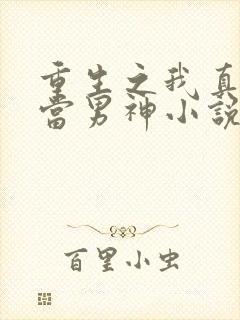 重生之我真
当男神小说
百里小虫